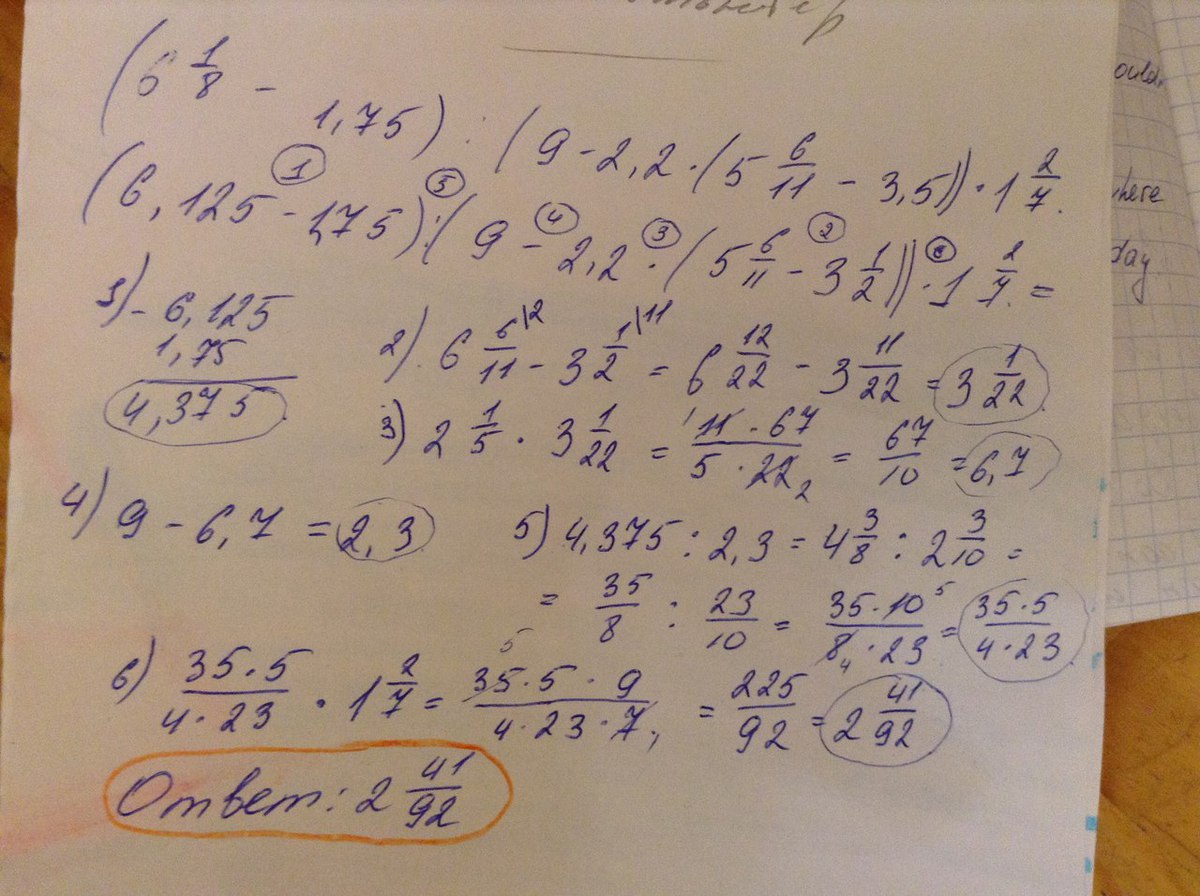 (6 1/8 - 1,75) : (9 - 2,2 · (5 6/11 - 3,5)) · 1 2/7.
(6,125 - 1,75) : (9 - 2,2 · (5 6/11 - 3 1/2)) · 1 2/7. =
① ⑤ ④ ③ ② ⑥
1) - 6,125
1,75
4,375
2). 6 6/11 \2 - 3 1/2 \11 = 6 12/22 - 3 11/22 = 3 1/22.
3) 2 1/5 · 3 1/22 = 11 · 67 / 5 · 22 2 = 67/10 = 6,7
4) 9 - 6,7 = 2,3
5) 4,375 : 2,3 = 4 3/8 : 2 3/10 =
= 35/8 : 23/10 = 35 · 10 5 / 8 4 · 23 = 35 · 5 / 4 · 23
6) 35 · 5 / 4 · 23 · 1 2/7 = 5 35 · 5 · 9 / 4 · 23 · 7 1 = 225/92 = 2 41/92
Ответ: 2 41/92
ould
here
day.